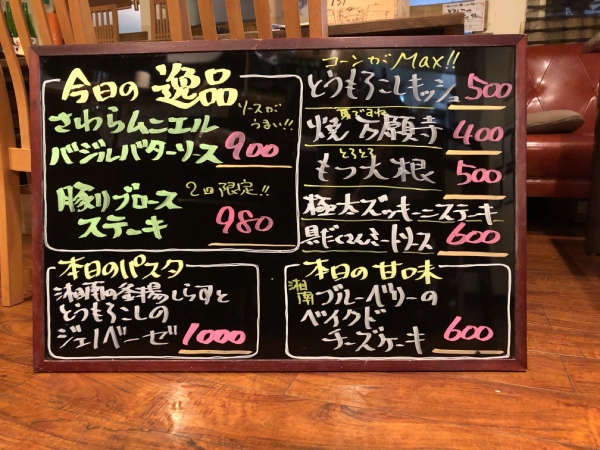 今日の逸品
さわらムニエル
ソースが
うまい!!
バジルバターソース 900
豚リブロース
2回限定!!
ステーキ 980
コーンがMax!!
とうもろこしキッシュ 500
夏ですね
焼万願寺 400
とろとろ
もつ大根 500
極太ズッキーニステーキ
具だくさんミートソース 600
本日のパスタ
湘南の釜揚しらすと
とうもろこしの
ジェノベーゼ 1000
本日の甘味
湘南ブルーベリーの
ベイクド
チーズケーキ 600